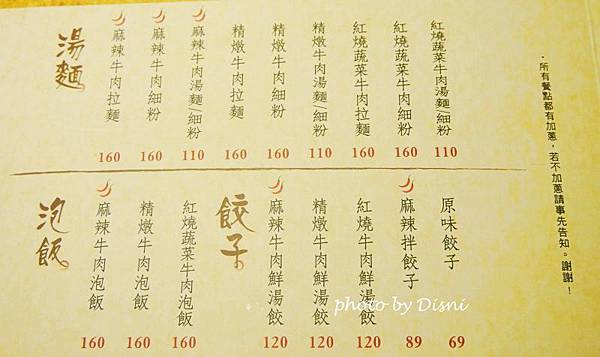 湯麵
麻辣牛肉拉麵 160
麻辣牛肉細粉 160
麻辣牛肉湯麵/細粉 110
精燉牛肉拉麵 160
精燉牛肉細粉 160
精燉牛肉湯麵/細粉 110
紅燒蔬菜牛肉拉麵 160
紅燒蔬菜牛肉細粉 160
紅燒蔬菜牛肉湯麵/細粉 110
泡飯
麻辣牛肉泡飯 160
精燉牛肉泡飯 160
紅燒蔬菜牛肉泡飯 160
餃子
麻辣牛肉鮮湯餃 120
精燉牛肉鮮湯餃 120
紅燒牛肉鮮湯餃 120
麻辣拌餃子 89
原味餃子 69
·所有餐點都有加蔥，若不加蔥請事先告知。謝謝！
photo by Disni